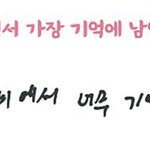 서 가장 기억에 남
에서 너무 기억